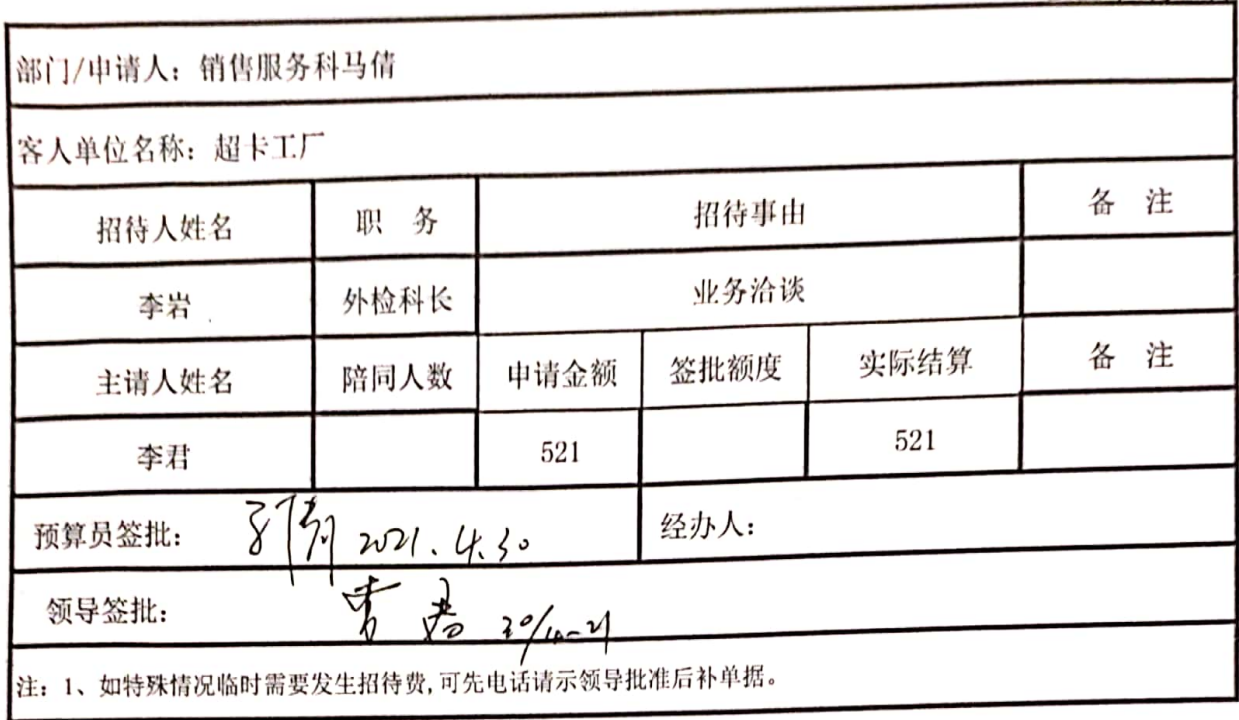 部门/申请人：销售服务科马倩
客人单位名称：超卡工厂
招待人姓名 职 务 招待事由 备 注
李岩 外检科长 业务洽谈
主请人姓名 陪同人数 申请金额 签批额度 实际结算 备 注
李君 521 521
预算员签批： 2021.4.30 经办人：
领导签批： 30/4-21
注：1、如特殊情况临时需要发生招待费,可先电话请示领导批准后补单据。